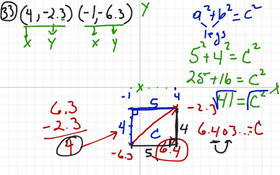 33) (4, -2.3) (-1, -6.3) Y
x y x y
a² + b² = c²
legs
5² + 4² = c²
25 + 16 = c²
√41 = √c²
6.403.. = c
6.3
- 2.3
4
x
-1 5 4
-2.3
4 c 4
-6.3 5 6.4